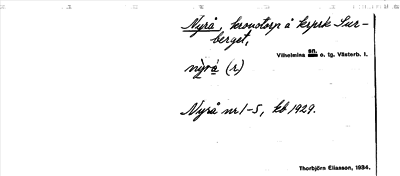 Nyrå, kronotorp å krprk Lur-
berget,
Vilhelmina sn. o. tg. Västerb. l.
nỳvá (r)
Nyrå nr 1-5, kb 1929.
Thorbjörn Eliasson, 1934.